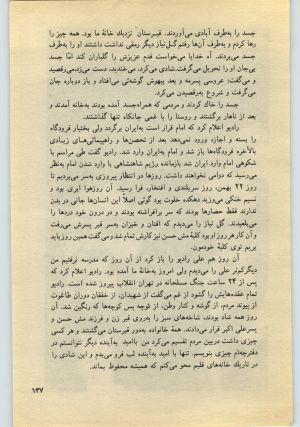 جسد را به‌طرف آبادی می‌آوردند. قبرستان نزدیك خانهٔ ما بود. همه چیز را
رها کردم و به‌طرف آن‌ها رفتم گلنیاز دیگر رمقی نداشت داشتند او را به‌طرف
جسد می‌بردند. آه خدایا می‌خواست قدم عزیزش را گلباران کند امّا جسد
بی‌جان او را تحویل می‌گرفت. شادی می‌کرد، می‌خندید، دست می‌زد، می‌رقصید
و می‌گفت: عروسی پسرمه و بعد بیهوش گوشه‌ئی می‌افتاد و باز دوباره جان
می‌گرفت و شروع به‌رقصیدن می‌کرد.
جسد را خاك کردند و مردمی که همراه جسد آمده بودند به‌خانه آمدند و
بعد از ناهار برگشتند و روستا را با غمی جانکاه تنها گذاشتند.
رادیو اعلام کرد که امام قرار است به‌ایران برگردد ولی بختیار فرودگاه
را بسته و اجازه ورود نمی‌دهد بعد از تحصن‌ها و راهپیمائی‌های زیادی
بالاخره فرودگاه‌ها باز شد و امام به‌ایران وارد شد. رادیو گفت طی مراسم با
شکوهی امام وارد ایران شد بازمانده رژیم شاهنشاهی با وارد شدن امام به‌نظر
می‌رسید که دوامی نخواهند داشت. روزها در انتظار پیروزی به‌سر می‌بردیم تا
روز ۲۲ بهمن، روز سربلندی و افتخار، فرا رسید. آن روز هوا ابری بود و
نسیم خنکی می‌وزید دهکده خلوت بود گوئی اصلاً این انسان‌ها جانی در بدن
ندارند فقط حصارها بودند که سر برافراشته بودند و در درون خود دردها را
می‌بلعیدند. گل نیاز را می‌دیدم که افتان و خیزان به‌سر قبر پسرش می‌رفت
و آن گاز هر روز او بود کلبهٔ مش حسن نیز کارش تمام شد و می‌گفت همین روز باید
بریم توی کلبهٔ خودمون.
آن روز هم علی رادیو را باز کرد از آن روز که مدرسه نرفتیم من
دیگر کمتر علی را می‌دیدم ولی امروز به‌خانهٔ ما آمده بود. رادیو اعلام کرد که
پس از ۲۴ ساعت جنگ مسلحانه در تهران انقلاب پیروز شده است. رادیو
تمام عقده‌هایش را گشود از غم می‌گفت از شهیدان، از خفقان دوران طاغوت
از پیوند مردم، از گوشه و کنار وطن، از توجه پس کوچه‌ها که رنگین شد. آن
روز همه شاد بودند، شاخه‌های سبز را به‌روی قبر زن و فرزند مش حسن و
پسر علی اکبر قرار می‌دادند. همهٔ خانواده به‌دور قبرستان می‌گشتند و هر کسی
چیزی داشت در‌بین مردم تقسیم می‌کرد من با‌امید به‌آینده دیگر نتوانستم در
دفترچه‌ام چیزی بنویسم. تنها با امید به‌آینده لب فرو می‌بدم و این شادی را
در تاریك خانه‌های قلبم محو می‌کنم که همیشه محفوظ بماند.
۱۳۷